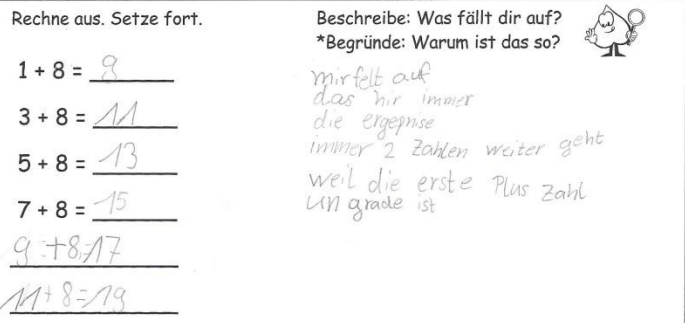 Rechne aus. Setze fort.
1 + 8 = 9
3 + 8 = 11
5 + 8 = 13
7 + 8 = 15
9 + 8 = 17
11 + 8 = 19
Beschreibe: Was fällt dir auf?
*Begründe: Warum ist das so?
mir felt auf
das hir immer
die ergepnise
immer 2 Zahlen weiter geht
weil die erste Plus Zahl
un grade ist